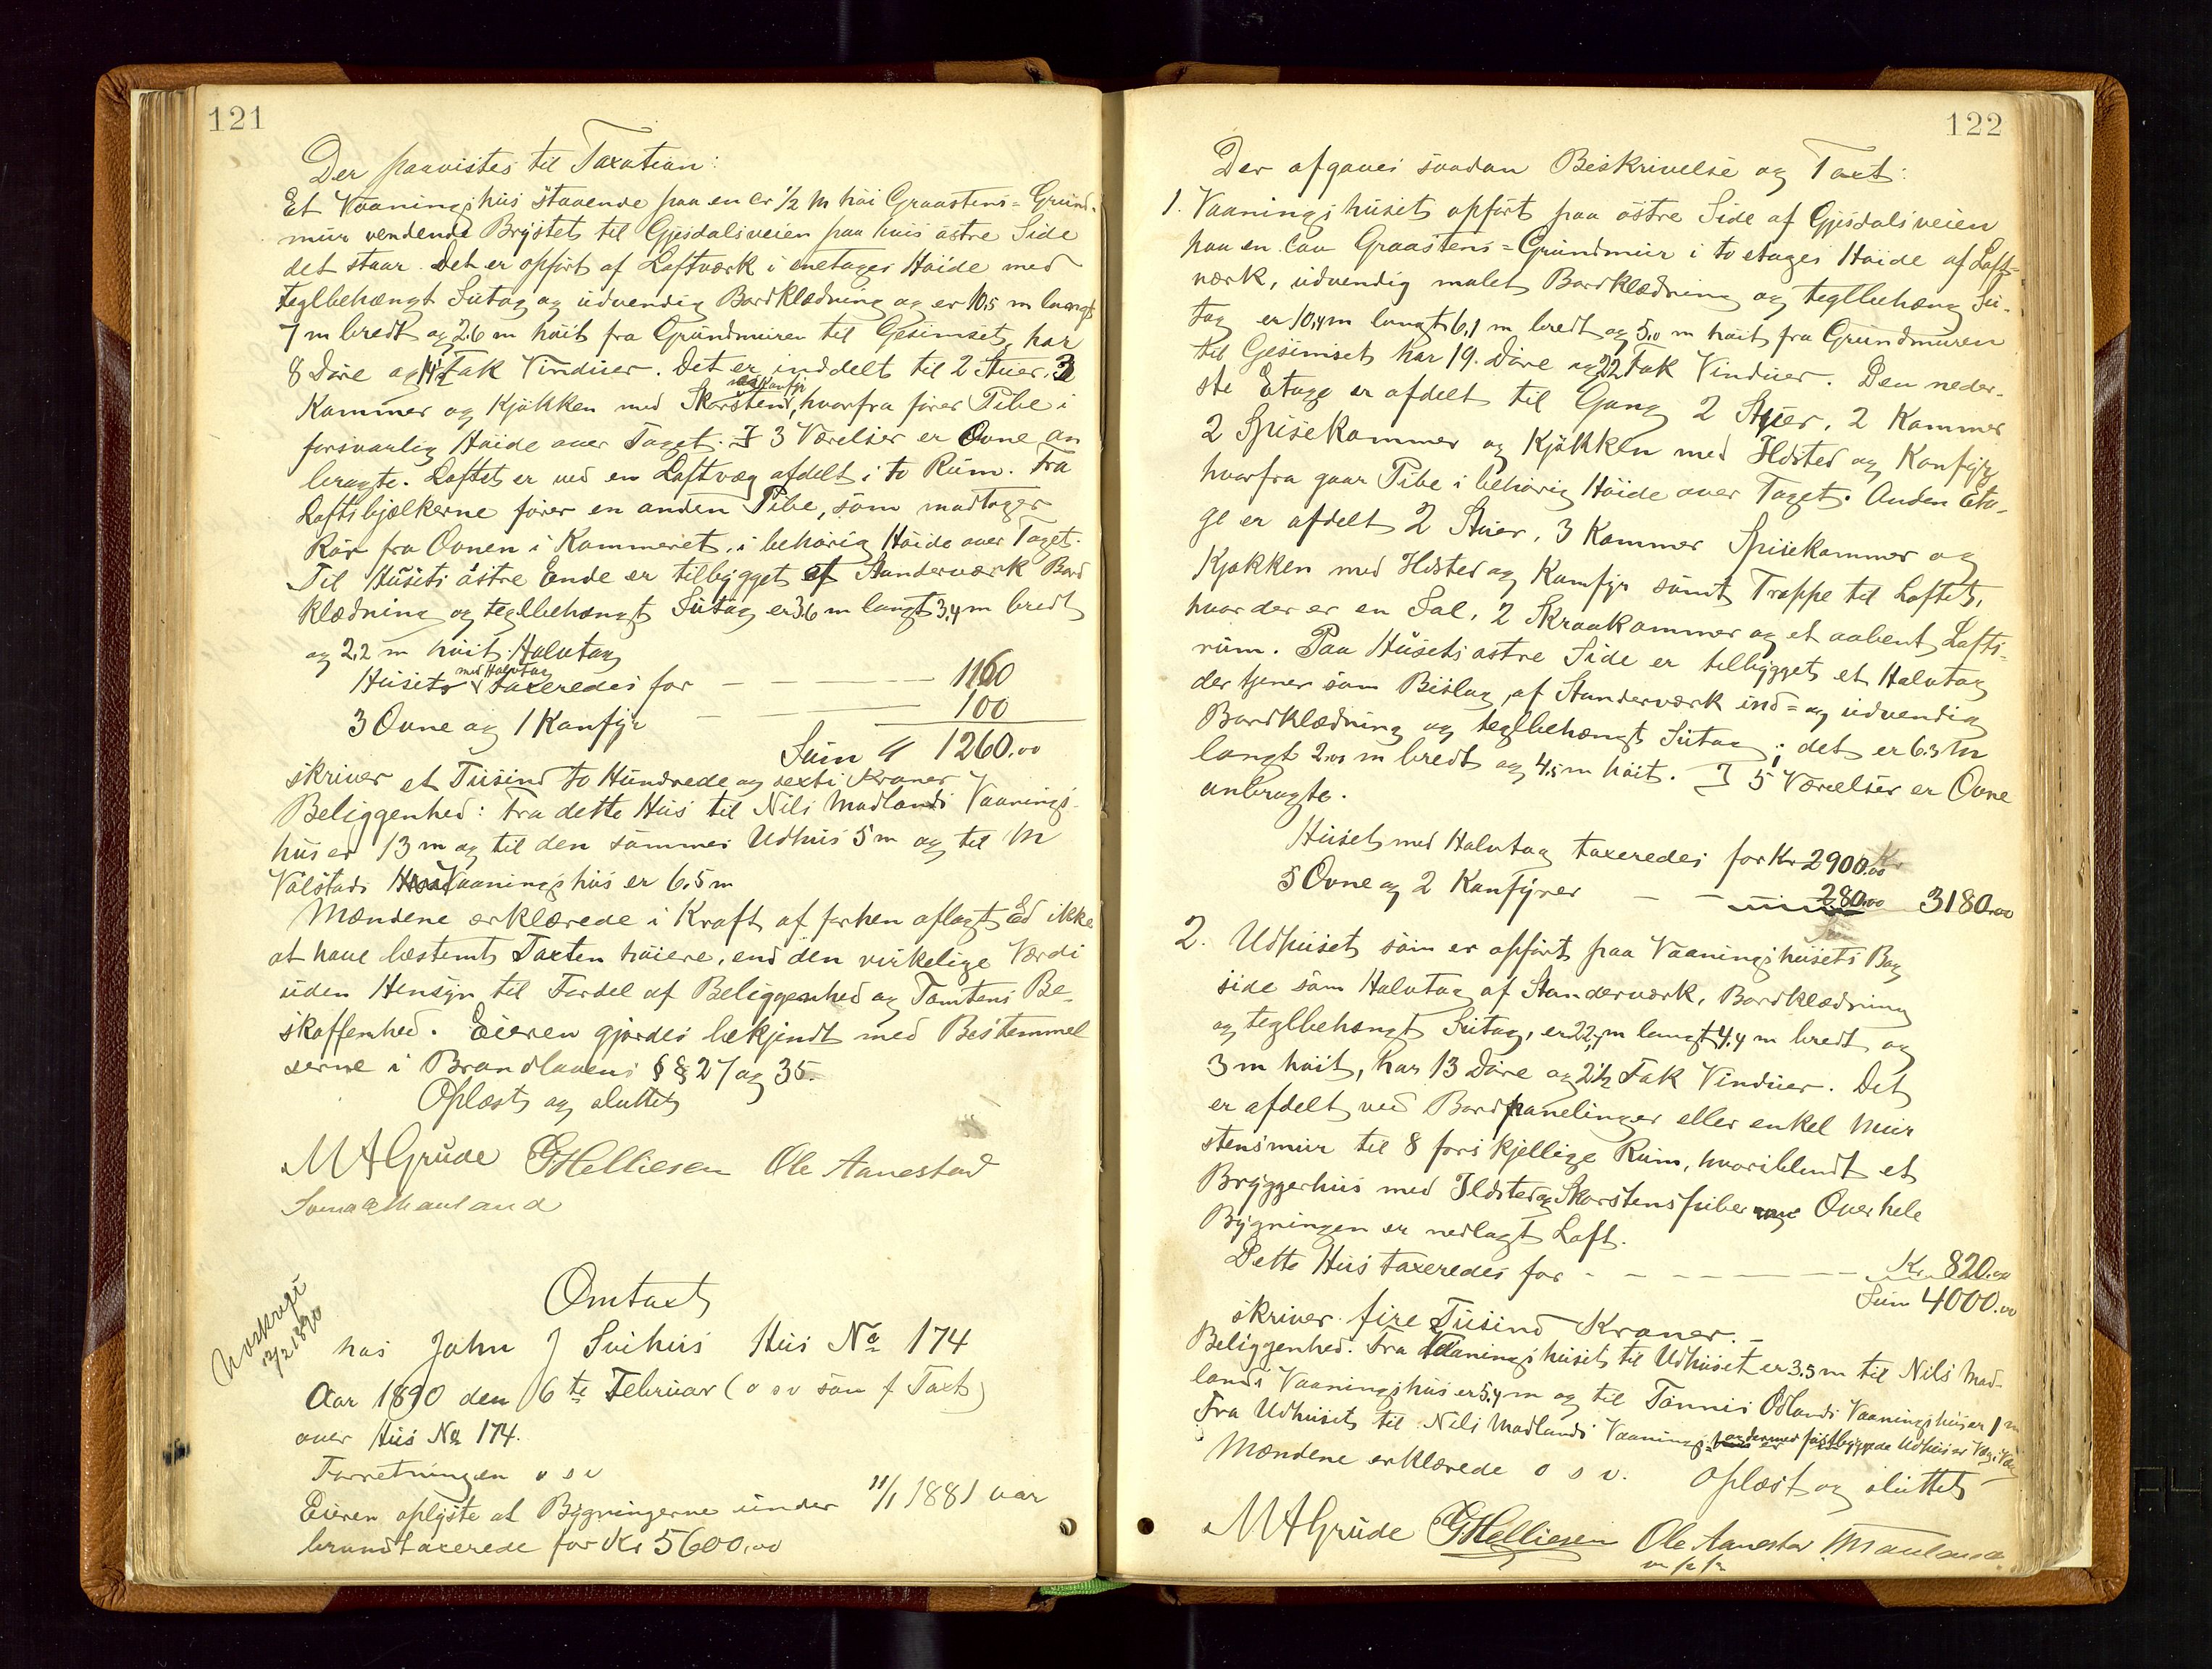 121
Der paavistes til Taxation:
Et Vaaningshus staaende paa en cr ½ m høi Graastens-Grund-
mur vendende Brystet til Gjesdalsveien paa hvis østre Side
det staar. Det er opført af Laftværk i enetages Høide med
teglbehængt Sutag og udvendig Bordklædning og er 10,5 m langt
7 m bredt og 2,6 m høit fra Grundmuren til Gesimset, har
8 Døre og 14½ Fak Vinduer. Det er inddelt til 2 Stuer, 3
Kammer og Kjøkken med Skorsten med Komfyr, hvorfra fører Pibe i
forsvarlig Høide over Taget. I 3 Værelser er Ovne an
bragte. Loftet er ved en Loftvæg afdelt i to Rum. Fra
Loftsbjælkerne fører en anden Pibe, som modtager
Rør fra Ovnen i Kammeret, i behørig Høide over Taget.
Til Husets østre Ende er tilbygget et Standerværk Bord
klædning og teglbehængt Sutag, er 3,6 m langt 3,4 m bredt
og 2,2 m høit Halvtag
Huset med Halvtag taxeredes for — — — — 1160
3 Ovne og 1 Komfyr — — 100
Sum 1260.00
skriver et Tusind to Hundrede og sexti Kroner
Beliggenhed: Fra dette Hus til Nils Madlands Vaanings-
hus er 13 m og til den sammes Udhus 5 m og til M
Válstads Vaaningshus er 6,5 m
Mændene erklærede i Kraft af forhen aflagt Ed ikke
at have bestemt Taxten høiere, end den virkelige Værdi
uden Hensyn til Fordel af Beliggenhed og Tomtens Be-
skaffenhed. Eieren gjordes bekjendt med Bestemmel
serne i Brandlovens §§ 27 og 35.
Oplæst og sluttet
M A Grude G Helliesen Ole Aanestad
Omtaxt
12/2 1890
hos John J Svihus Hus No 174
Aar 1890 den 6te Februar (o s v som f Taxt)
over Hus No 174.
Forretningen o s v
Eieren oplyste at Bygningerne under 11/1 1881 var
brandtaxerede for Kr 5600,00
122
Der afgaves saadan Beskrivelse og Taxt:
1. Vaaningshuset opført paa østre Side af Gjesdalsveien
paa en lav Graastens-Grundmur i to etages Høide af Laft-
værk, udvendig malet Bordklædning og teglbehæng Su-
tag er 10,4 m langt 6,1 m bredt og 5,0 m høit fra Grundmuren
til Gesimset har 19 Døre og 22½ Fak Vinduer. Den neder-
ste Etage er afdelt til Gang 2 Stuer, 2 Kammer
2 Spisekammer og Kjøkken med Ildsted og Komfyr
hvorfra gaar Pibe i behørig Høide over Taget. Anden Eta-
ge er afdelt 2 Stuer, 3 Kammer Spisekammer og
Kjøkken med Ildsted og Komfyr samt Trappe til Loftet,
hvor der er en Sal, 2 Skraakammer og et aabent Lofts-
rum. Paa Husets østre Side er tilbygget et Halvtag
der tjener som Bislag, af Standerværk ind- og udvendig
Bordklædning og teglbehængt Sutag; det er 6,3 m
langt 2,00 m bredt og 4,5 m høit. I 5 Værelser er Ovne
anbragte.
Huset med Halvtag taxeredes for Kr 2900.00
5 Ovne og 2 Komfyrer — — 280.00 3180.00
2. Udhuset som er opført paa Vaaningshusets Bag
side som Halvtag af Standerværk, Bordklædning
og teglbehængt Sutag, er 22,7 m langt 4,4 m bredt og
3 m høit, har 13 Døre og 2½ Fak Vinduer. Det
er afdelt ved Bordpanelinger eller enkel Mur
stensmur til 8 forskjellige Rum, hvoriblandt et
Bryggerhus med Ildsted og Skorstenspiber Over hele
Bygningen er nedlagt Loft.
Dette Hus taxeredes for — — — — Kr 820.00
Sum 4000.00
skriver fire Tusind Kroner. —
Beliggenhed. Fra Vaaningshuset til Udhuset er 3.5 m til Nils Mad-
lands Vaaningshus er 5,4 m og til Tønnes Ødlands Vaaningshus er 1 m
Fra Udhuset til Nils Madlands Vaanings
Mændene erklærede o s v. Oplæst og sluttet
M A Grude G Helliesen Ole Aanestad